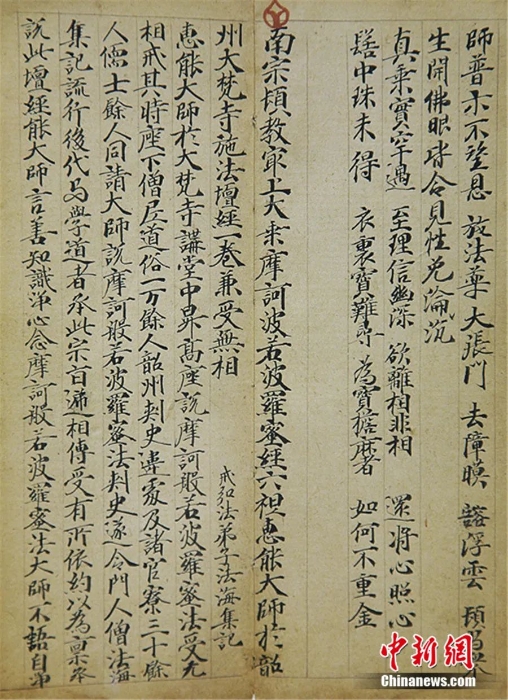 師普示不望恩 放法華大張門 去障暎 豁浮雲 頓
生開佛眼皆令見性免淪沉
真乘實罕遇 至理信幽深 欲離相非相 還將心照心
髻中珠未得 衣裏寶難尋 為寶擔麻者 如何不重金
南宗頓教㝡上大乘摩訶波若波羅蜜經六祖惠能大師於韶
州大梵寺施法壇經一卷兼受無相
戒弘法弟子法海集記
惠能大師於大梵寺講堂中昇高座說摩訶般若波羅蜜法受无
相戒其時座下僧尼道俗一万餘人韶州刾史違處及諸官寮三十餘
人儒士餘人同請大師說摩訶般若波羅蜜法刾史遂令門人僧法海
集記流行後代与學道者承此宗旨遞相傳受有所依約以為稟承
說此壇經能大師言善知識淨心念摩訶般若波羅蜜法大師不語自
中新网
Chinanews.com